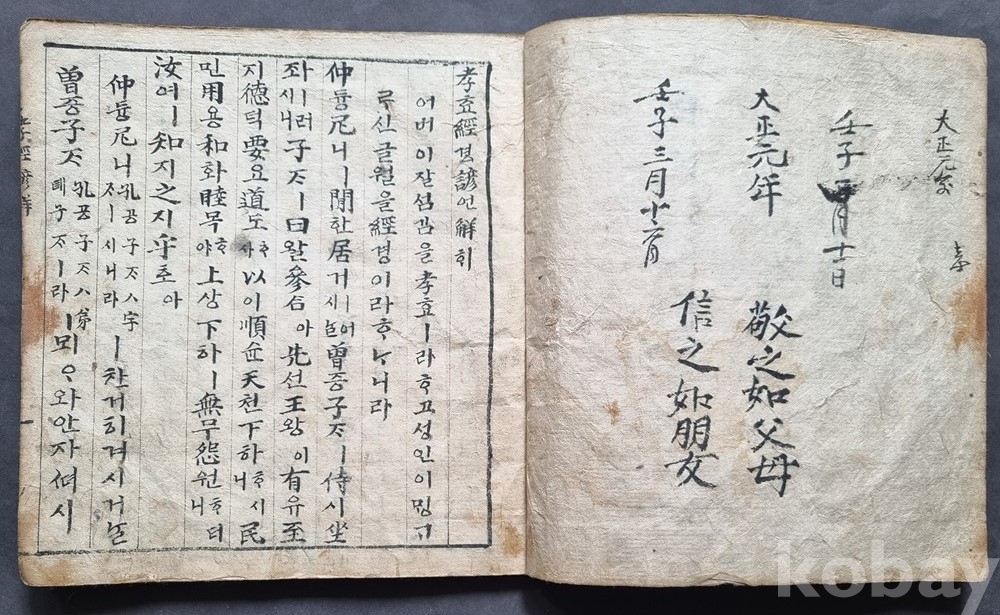 大正元年
孝
壬子
大正元年
敬之如父母
壬子三月
信之如朋友
孝효經경諺언解ᄒᆡ
어버이잘셤김을孝효ㅣ라ᄒᆞ고성인이ᄆᆡᆼᄀᆞ
ᄅᆞ신글월을經경이라ᄒᆞᄂᆞ니라
仲듕尼니ㅣ閒한居거ㅣ시어ᄂᆞᆯ曾증子ᄌᆞㅣ侍시坐
좌ㅣ러시니子ᄌᆞㅣ曰왈參ᄉᆞᆷ아先선王왕이有유至
지德덕要요道도ᄒᆞ샤以이順슌天텬下하ᄒᆞ시니民
민用용和화睦목ᄒᆞ야上상下하ㅣ無무怨원ᄒᆞ더니
汝여ㅣ知지之지乎호아
仲듕尼니孔공子ᄌᆞㅅ字ᄌᆞㅣ시니라ㅣ한거히겨시거ᄂᆞᆯ
曾증子ᄌᆞ孔공子ᄌᆞㅅ弟뎨子ᄌᆞㅣ라ㅣ뫼ᄋᆞ와안자
kobay